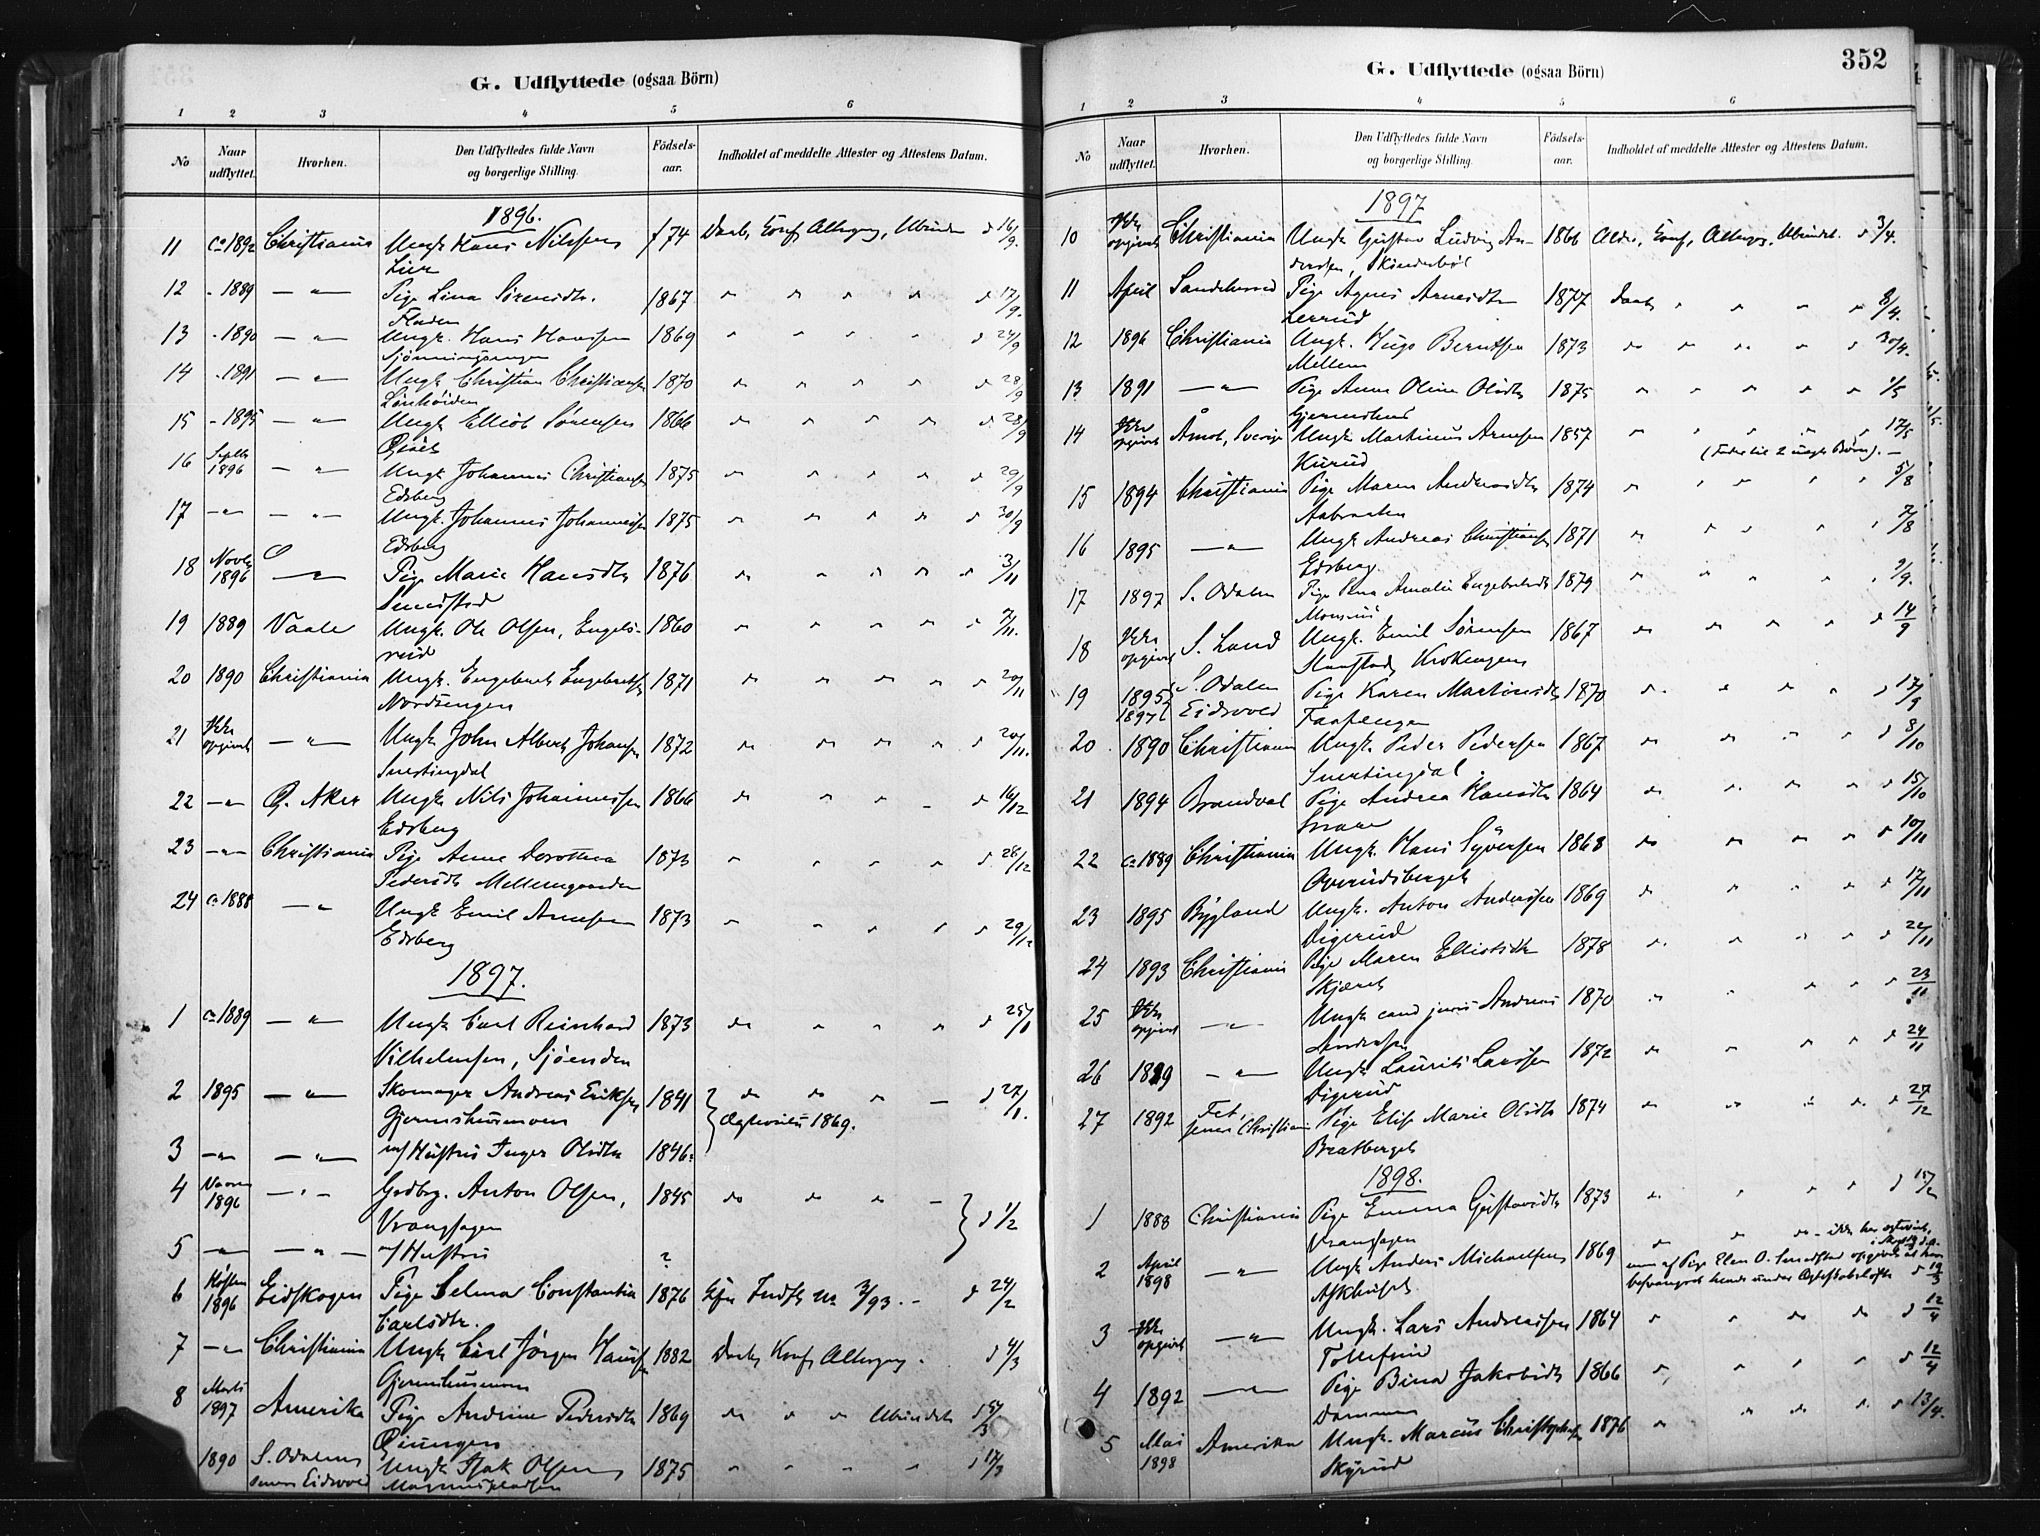 G. Udflyttede (ogsaa Börn)
1 2 3 4 5 6
No Naar udflyttet. Hvorhen. Den Udflyttedes fulde Navn og borgerlige Stilling. Födsels-aar. Indholdet af meddelte Attester og Attestens Datum.
1896.
11 Ca 1892 Christiania Ungk. Hans Nilssen 74 Daab, Konf, Altergang, 16/9.
Lier
12 - 1889 — " — Pige Lina Sørensdtr. 1867 " " " " d 17/9.
13 - 1890 — " — Ungk. Hans Hanssen 1869 " " " " d 24/9
14 - 1891 — " — Ungk. Christian Christiansen 1870 " " " " d 28/9
15 - 1895 — " — Ungk Elliot Sørensen 1866 " " " " d 28/9
16 Septbr 1896 — " — Ungk Johannes Christiansen 1875 " " " " d 29/9
Edsberg
17 — " — — " — Ungk. Johannes Johannessen 1875 " " " " d 30/9
Edsberg
18 Novbr 1896 — " — Pige Marie Hansdtr 1876 " " " " d 3/11
Smedstad
19 1889 Vaale Ungk. Ole Olsen, Engels- 1860 " " " " d 7/11.
rud
20 1890 Christiania Ungk. Engebret Engebretsen 1871 " " " " d 20/11
Nordengen
21 Ikke opgivet — " — Ungk John Albert Johansen 1872 " " " " d 20/11.
Snertingdal
22 — " — Ø. Aker Ungk Nils Johannessen 1866 " " " - d 16/12
Edsberg
23 — " — Christiania Pige Anne Dorothea 1873 " " " " d 28/12
Pedersdtr Mellemgaarden
24 ca 1888 — " — Ungk Emil Arnesen 1873 " " " " d 29/12
Edsberg
1897.
1 ca 1889 — " — Ungk Carl Reinhard 1873 " " " " d 25/1
Vilhelmsen, Sjøenden
2 1895 — " — Skomager Andreas Eriksen 1841 " " " — d 27/1.
Gjermshusmoen Ægteviet 1869.
3 — " — — " — m/ Hustru Inger Olsdtr 1846
4 1896 — " — Gbrg. Anton Olsen, 1845 " " " — d 1/2
Vranghagen
5 — " — — " — m/ Hustru ?
6 Høsten 1896 Eidskogen Pige Selma Constantia 1876 d 24/2
Carlsdtr.
7 — " — Christiania Ungk Carl Jørgen Hansen 1882 Daab, Konf, Altergang. d 4/3
Gjermshusmoen
8 Marts 1897 Amerika Pige Andrine Pedersdtr 1869 " " " Ubundet
1890 S. Odalen senere Eidsvold Ungk Isak Olsen 1875 " " " " d 17/3
G. Udflyttede (ogsaa Börn) 352
1 2 3 4 5 6
No Naar udflyttet. Hvorhen. Den Udflyttedes fulde Navn og borgerlige Stilling. Födsels-aar. Indholdet af meddelte Attester og Attestens Datum.
1897
10 Ikke opgivet Christiania Ungk Gustav Ludvig An- 1866 Alder, Konf, Alterg., Ubundet. d 3/4.
dersen, Skinderbøl
11 April Sandehered Pige Agnes Arnesdtr 1877 Daab " " " " 8/4.
Lerrud
12 1896 Christiania Ungk. Hugo Berntsen 1873 " " " " d 30/4.
Mellem
13 1891 — " — Pige Anne Oline Olsdtr 1875 " " " " " 1/5
Gjermshus
14 Ikke opgivet Åmot, Sverige Ungk Martinus Arnesen 1857 " " " " " 17/5
Kurud (Fader til 2 uægte Børn). —
15 1894 Christiania Pige Maren Andersdtr 1874 " " " " " 5/8
Aabraaten
16 1895 — " — Ungk Andreas Christiansen 1871 " " " " " 7/8
Edsberg
17 1897 S. Odalen Pige Amalie Engebretsdtr 1879 " " " " " 2/9.
18 Ikke opgivet S. Land Ungk. Emil Sørensen 1867 " " " " d 14/9
Krokengen
19 1895 1897 S. Odalen Eidsvold Pige Karen Martinsdtr 1870 " " " " d 17/9
20 1890 Christiania Ungk. Peder Pedersen 1867 " " " " d 8/10
Snertingdal
21 1894 Brandval Pige Andrea Hansdtr 1864 " " " " d 15/10
22 ca 1889 Christiania Ungk. Hans Syversen 1868 " " " " d 10/11
Overudsberget
23 1895 Bygland Ungk. Anton Andersen 1869 " " " " d 17/11
Digerud
24 1893 Christiania Pige Maren Elliotsdtr 1878 " " " " d 22/11
Skjæret
25 Ikke opgivet — " — Ungk cand juris Andreas 1870 " " " " d 23/11
Andersen
26 1889 — " — Ungk Laurits Larssen 1872 " " " " d 24/11
Digerud
27 1892 Fet, senere Christiania Pige Elise Marie Olsdtr 1874 " " " " d 27/12
Bratberget
1898.
1 1888 Christiania Pige Emma Gustavsdtr 1873 " " " " d 15/2
Vranghagen
2 April 1898 — " — Ungk Anders Michaelsen 1869 " " " - ikke har ægteviet,
Askhuset men af Pige Elen O. Smedstad opgivet at have
besvangret hende under Ægteskabsløfte d 19/3
3 Ikke opgivet — " — Ungk. Lars Andreassen 1864 " " " " d 12/4
Tollefrud
4 1892 — " — Pige Bina Jakobsdtr 1866 " " " " d 12/4
Dammen
5 Mai 1898 Amerika Ungk. Marcus Christophersen 1876 " " " " " 13/4.
Skyrud